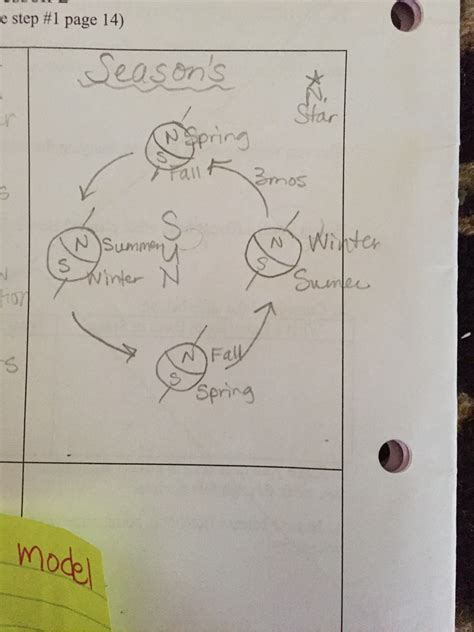 e step #1 page 14)
Season's
N.
Star
N Spring
S
Fall
3mos
S
u
N
N Summer
S
Winter
N Winter
S
Sumer
N Fall
S
Spring
model